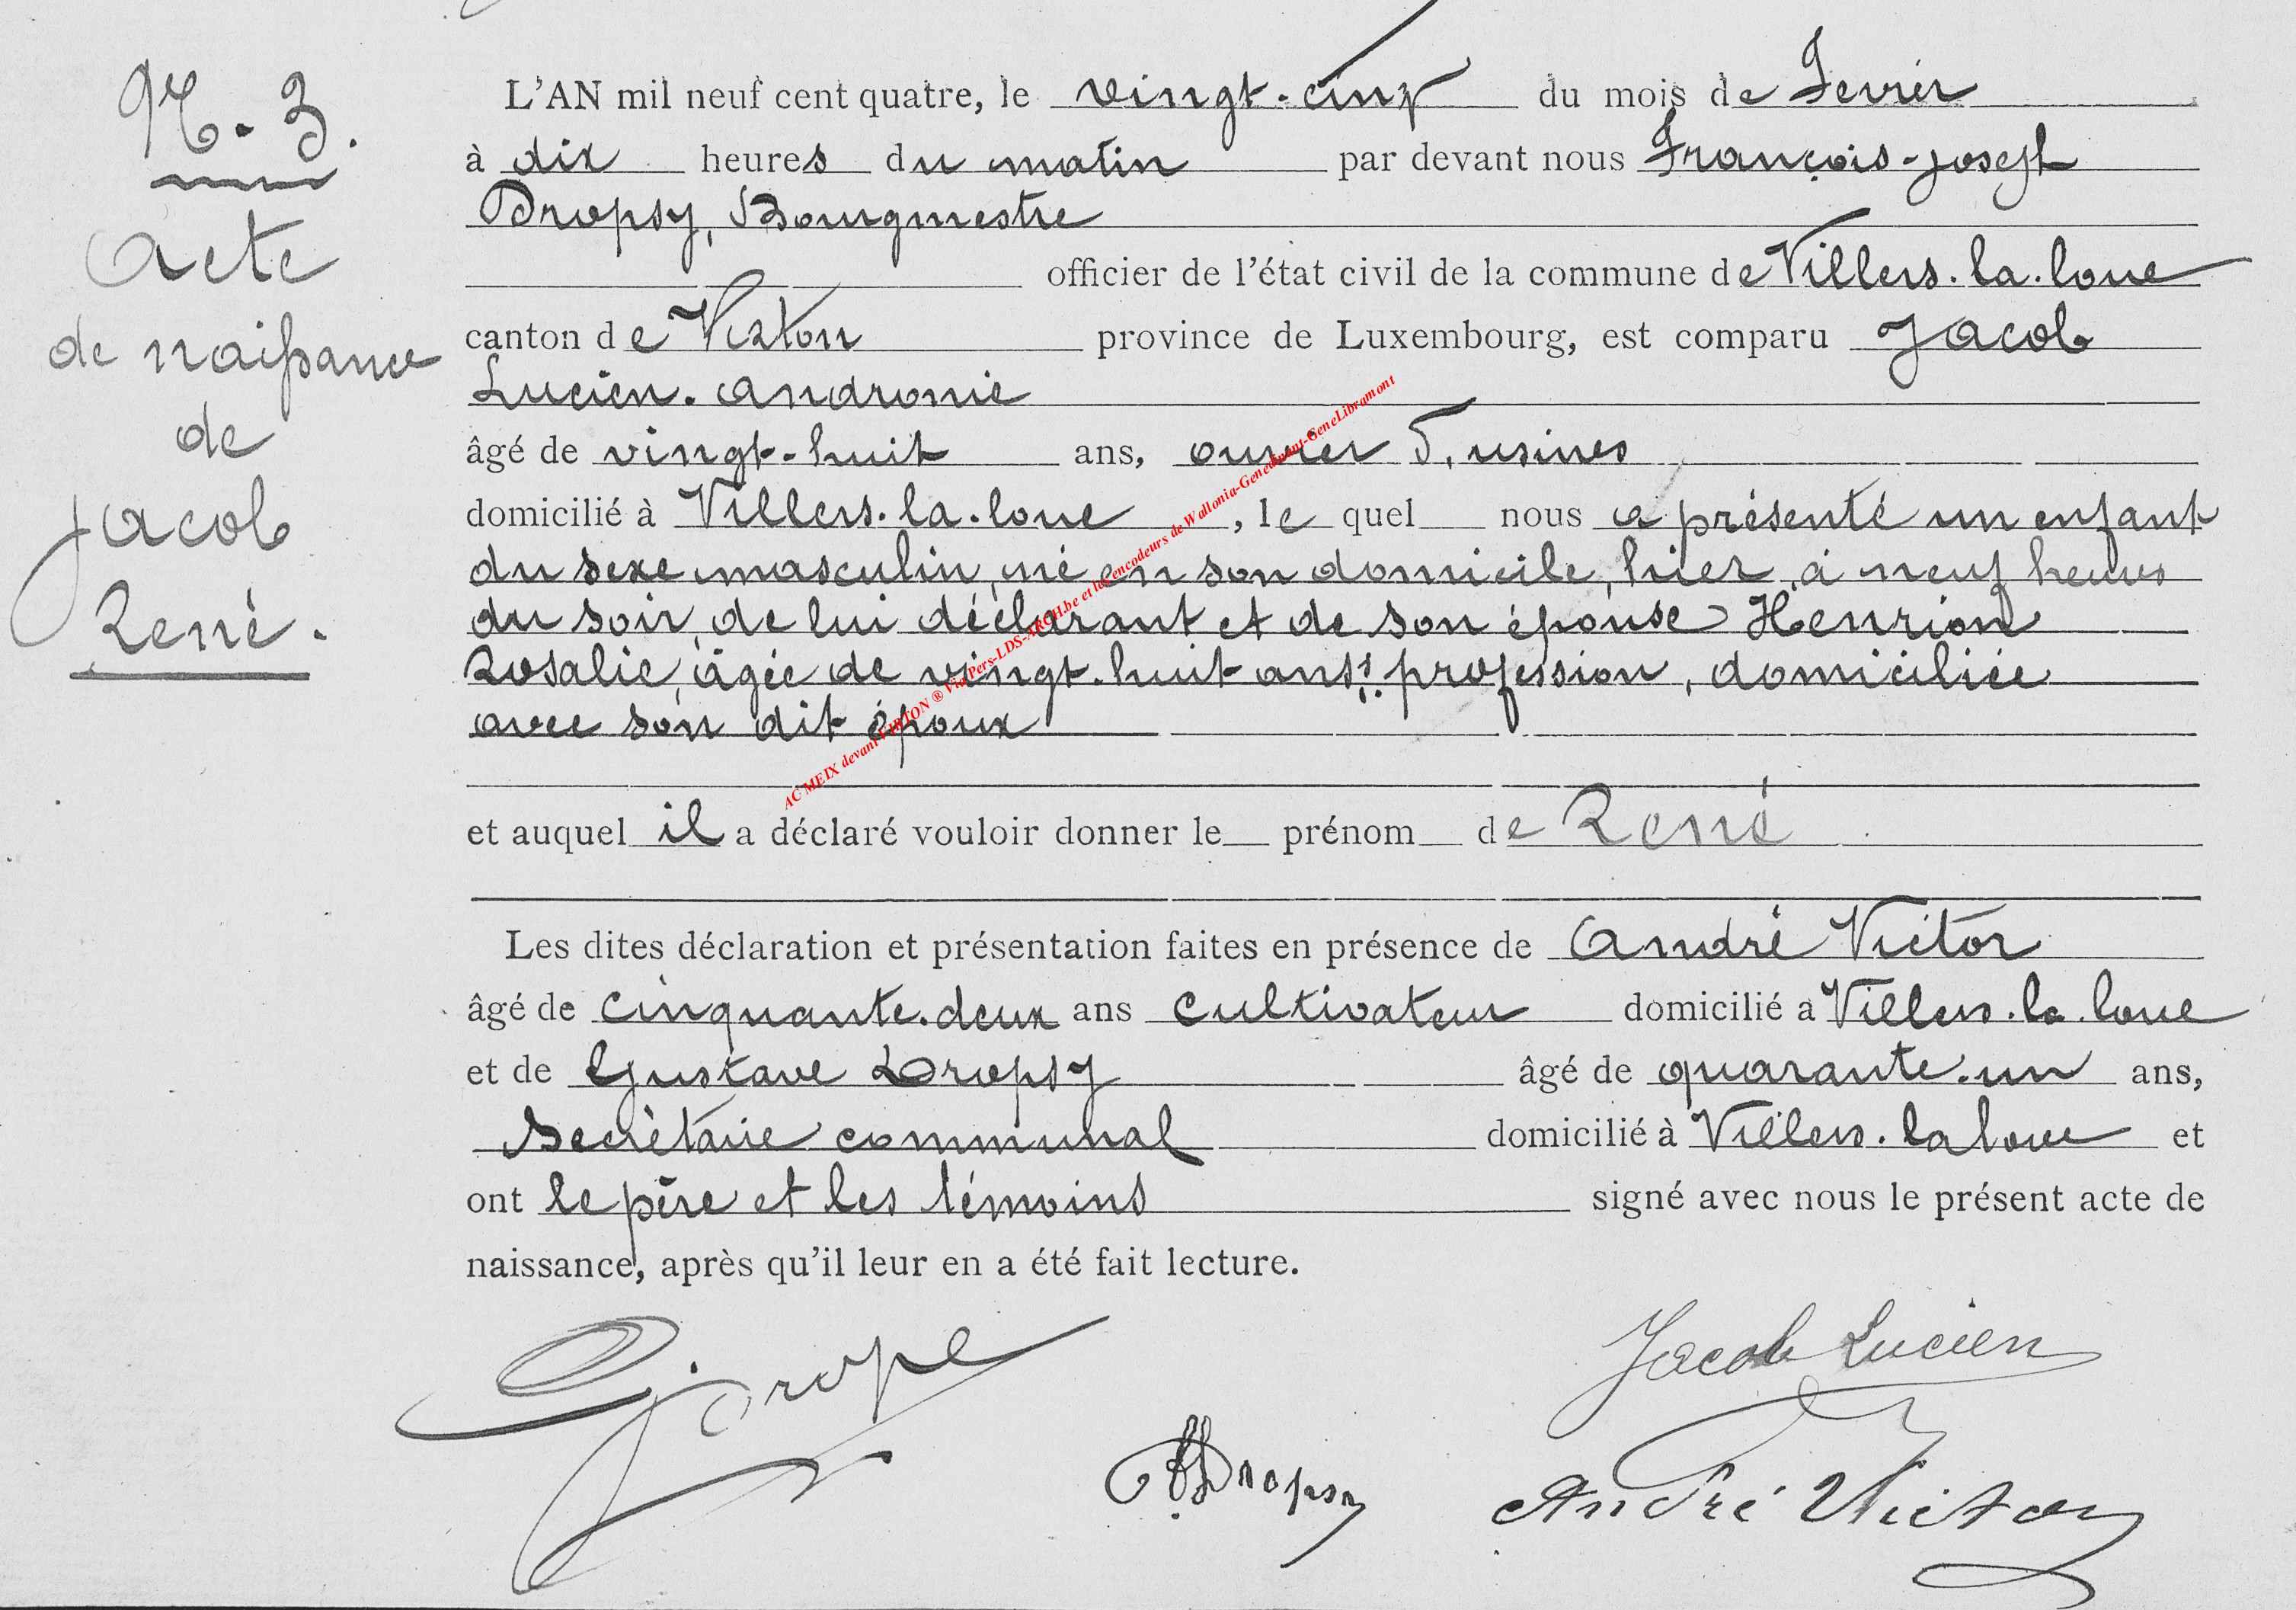 N. 3.
Acte
de naissance
de
Jacob
René.
L'AN mil neuf cent quatre, le vingt-cinq du mois de Fevrier
à dix heures du matin par devant nous François-Joseph
Dropsy, Bourgmestre
officier de l'état civil de la commune de Villers-la-loue
canton de Virton province de Luxembourg, est comparu Jacob
Lucien. Andronie
âgé de vingt-huit ans, ouvrier d'usines
domicilié à Villers-la-loue, lequel nous a présenté un enfant
du sexe masculin, né en son domicile, hier, à neuf heures
du soir, de lui déclarant et de son épouse Henrion
Rosalie, âgée de vingt-huit ans, profession, domiciliée
avec son dit époux
et auquel il a déclaré vouloir donner le prénom de René
Les dites déclaration et présentation faites en présence de André Victor
âgé de cinquante-deux ans cultivateur domicilié à Villers-la-loue
et de Gustave Dropsy âgé de quarante-un ans,
Secrétaire communal domicilié à Villers-la loue et
ont le père et les témoins signé avec nous le présent acte de
naissance, après qu'il leur en a été fait lecture.
Jacob Lucien
Dropsy
André Victor
AC MEIX devant VIRTON ® Via Pers-LDS-ARCH.be et les encodeurs de Wallonia-Genedinant-GeneLibramont